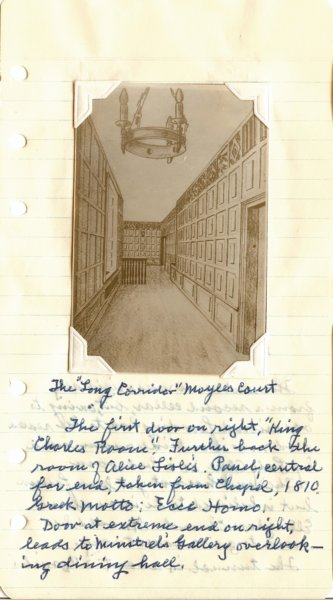 The "Long Corridor" Moyles Court
The first door on right, "King
Charles Room". Further back the
room of Alice Lisle's. Panel, central
far end, taken from Chapel, 1810.
Greek Motto - Ecce Homo.
Door at extreme end on right,
leads to Minstrel's Gallery overlook-
ing dining hall.